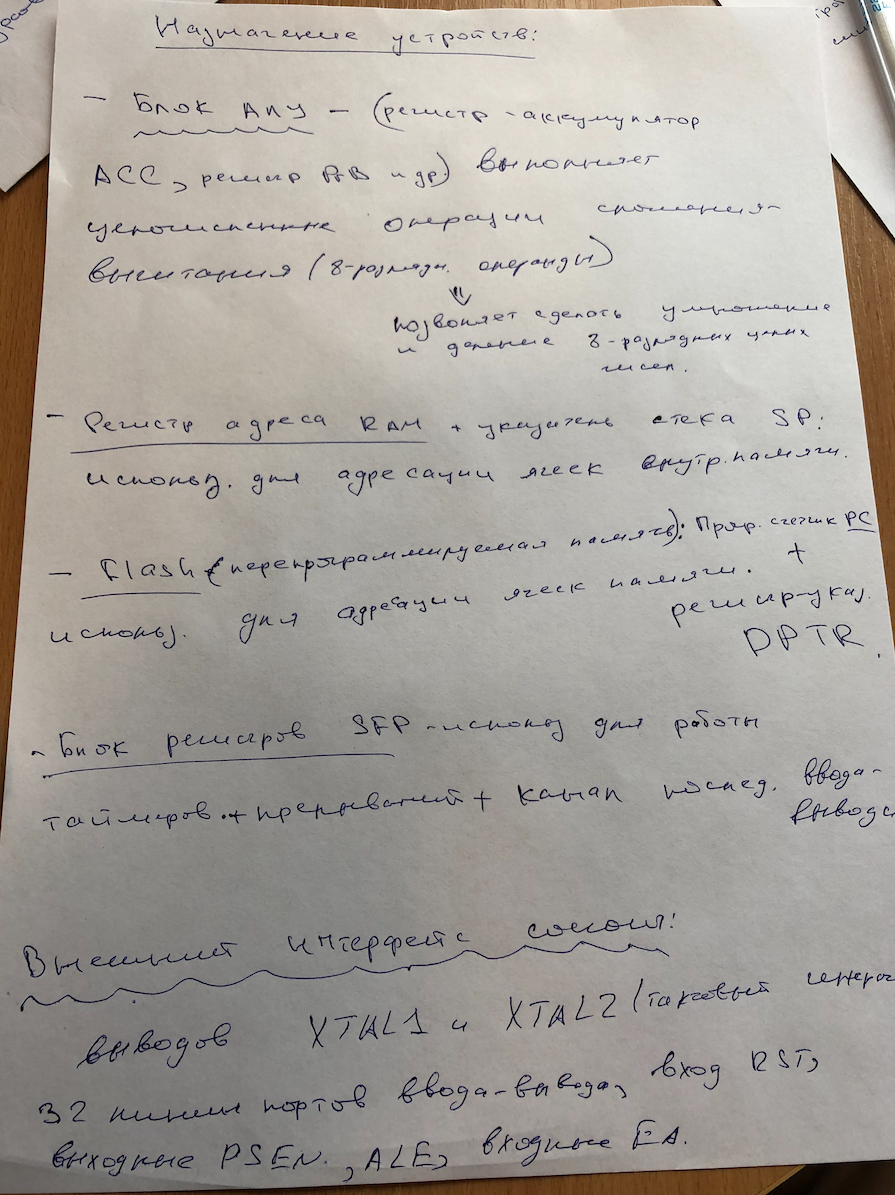 Назначение устройств:
- Блок АЛУ - (регистр-аккумулятор
ACC, регистр РВ и др.) выполняет
целочисленные операции сложения-
вычитания (8-разрядн. операнды)
позволяет сделать умножение
и деление 8-разрядных целых
чисел.
- Регистр адреса RAM + указатель стека SP:
использ. для адресации ячеек внутр. памяти.
- Flash (перепрограммируемая память): Прогр. счетчик PC
использ. для адресации ячеек памяти. +
регистр-указ.
DPTR.
- Блок регистров SFP - использ для работы
таймеров. + прерываний + канал послед. ввода-
вывода
Внешний интерфейс состоит:
выводов XTAL1 и XTAL2 (тактовый
32 линии портов ввода-вывода, вход RST,
выходные PSEN. , ALE, входные EA.